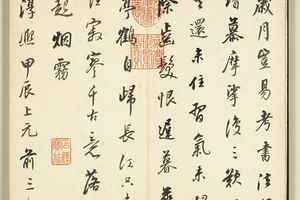 歲月豈易考書法
增慕摩挲復三歎
還未住習氣未
除齒髮恨遲暮
亭鶴自歸長江只
寂寥千古意落
起烟霧
淳熙甲辰上元前三